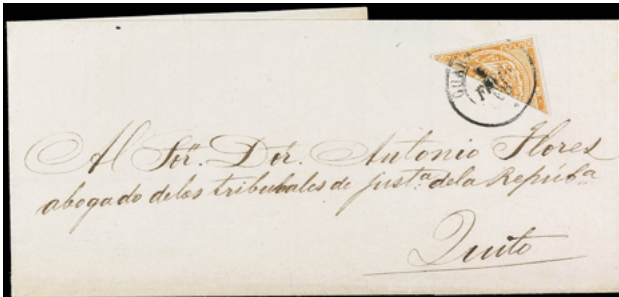 GUA
FRANCA
Al Sōr. Dōr. Antonio Flores
abogado delos tribunales de just.ª dela Repúb.ª
Quito